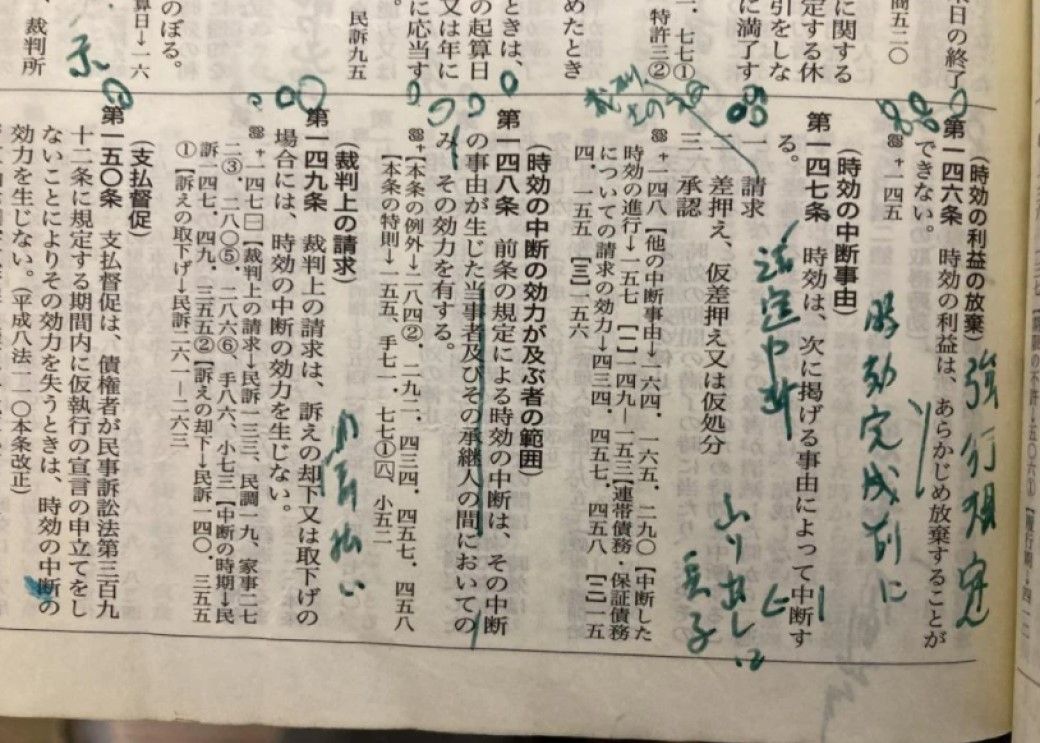 末日の終了
に関する
定する休
引をしな
に満了す
一．七七①
特許三②
めたとき
ときは、
の起算日
又は年に
に応当す
民訴九五
のぼる。
算日→一六
裁判所
（時効の利益の放棄）
強行規定
第一四六条　時効の利益は、あらかじめ放棄することが
できない。
時効完成前に
❀＋一四五
（時効の中断事由）
第一四七条　時効は、次に掲げる事由によって中断す
る。
法定中断
一　請求
二　差押え、仮差押え又は仮処分
三　承認
❀＋一四八【他の中断事由→一六四．一六五．二九〇【中断した
時効の進行→一五七【一】一四九―一五三【連帯債務・保証債務
についての請求の効力→四三四．四五七．四五八【二】一五
四．一五五【三】一五六
（時効の中断の効力が及ぶ者の範囲）
第一四八条　前条の規定による時効の中断は、その中断
の事由が生じた当事者及びその承継人の間においての
み、その効力を有する。
❀＋【本条の例外→二八四②．二九二．四三四．四五七．四五八
【本条の特則→一五五、手七一．七七①八、小五二
（裁判上の請求）
第一四九条　裁判上の請求は、訴えの却下又は取下げの
場合には、時効の中断の効力を生じない。
❀＋一四七㊀【裁判上の請求→民訴一三三、民調一九、家事二七
二③．二八〇⑤．二八六⑥、手八六、小七三【中断の時期→民
訴一四七．四九．三五五②【訴えの却下→民訴一四〇．三五五
①【訴えの取下げ→民訴二六一―二六三
（支払督促）
第一五〇条　支払督促は、債権者が民事訴訟法第三百九
十二条に規定する期間内に仮執行の宣言の申立てをし
ないことによりその効力を失うときは、時効の中断の
効力を生じない。（平成八法一一〇本条改正）